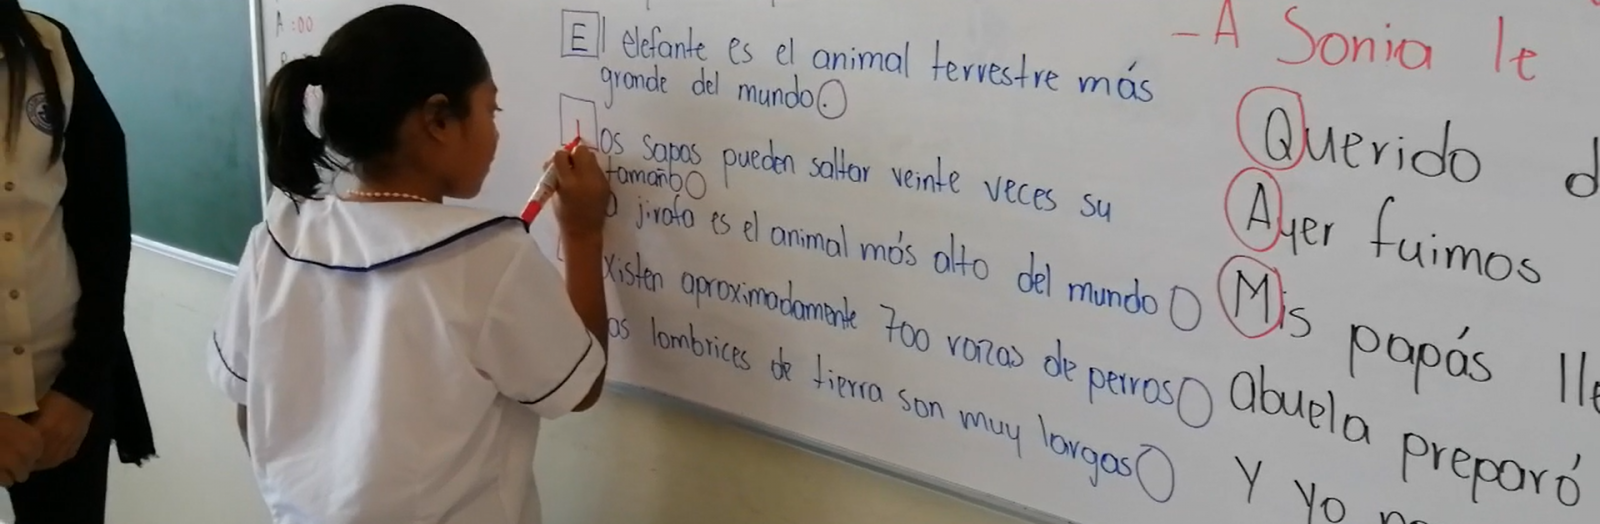 A :00
El elefante es el animal terrestre más
grande del mundo.
os sapos pueden saltar veinte veces su
tamaño
a jirafa es el animal más alto del mundo
xisten aproximadamente 700 razas de perros
as lombrices de tierra son muy largas
- A Sonia le
Querido d
Ayer fuimos
Mis papás lle
abuela preparó
y yo no